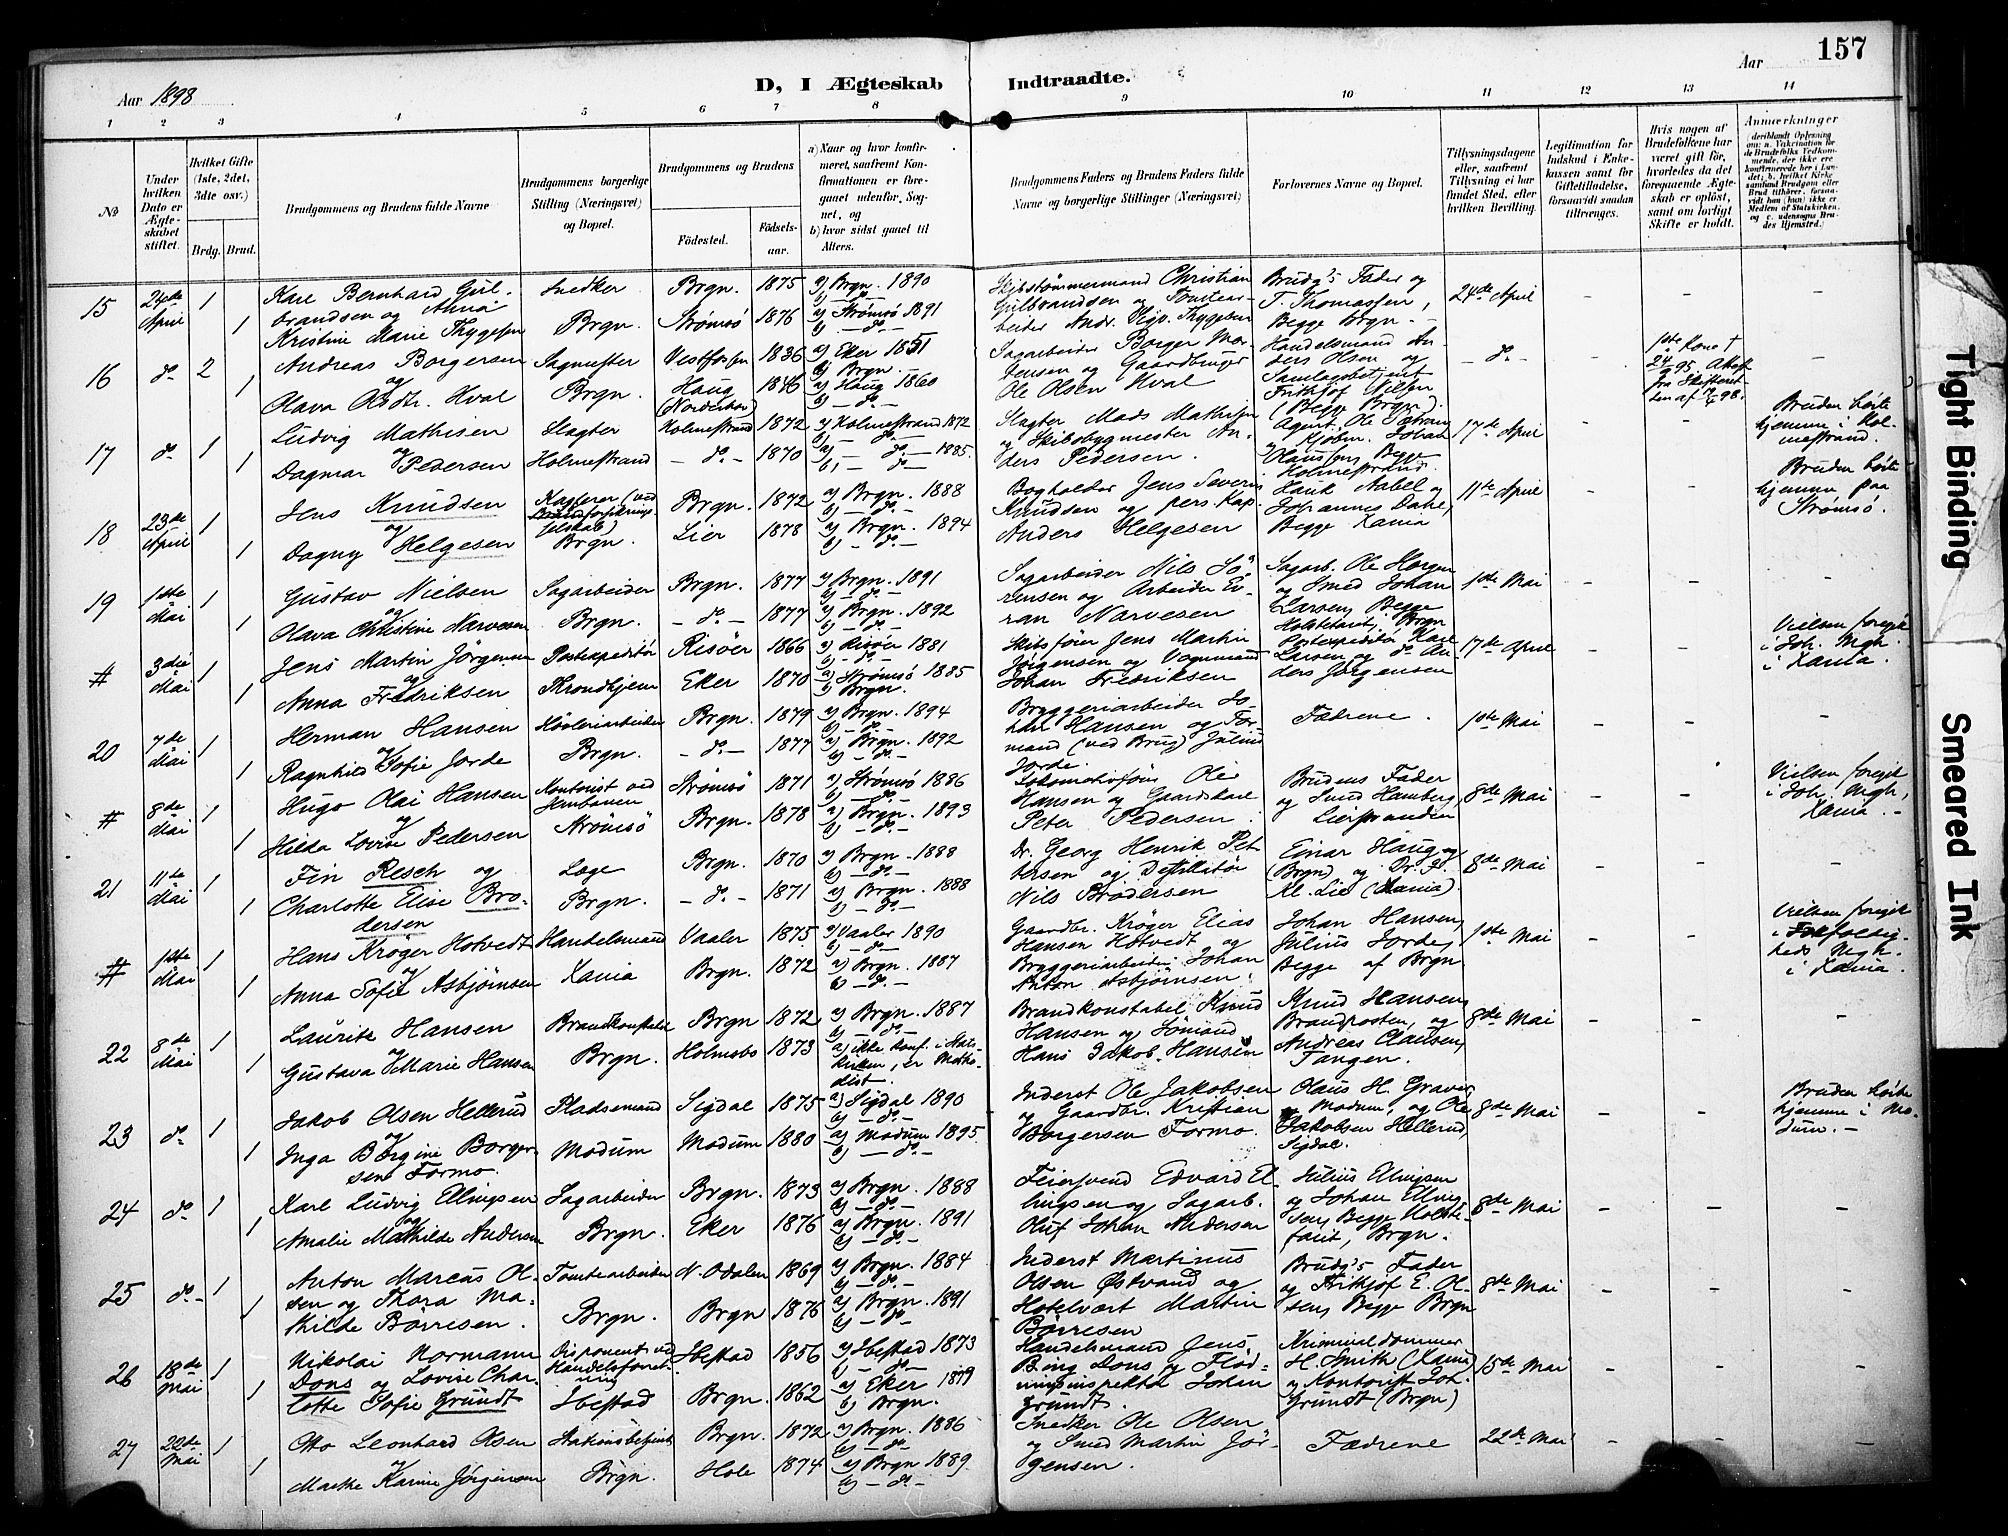 157
Aar 1898
D, I Ægteskab Indtraadte.
Aar
1 2 3 4 5 6 7 8 9 10 11 12 13 14
№
Under hvilken Dato er Ægteskabet stiftet.
Hvilket Gifte (1ste, 2det, 3die osv.)
Brdg. Brud.
Brudgommens og Brudens fulde Navne
Brudgommens borgerlige Stilling (Næringsvei) og Bopæl.
Brudgommens og Brudens
Födested. Födselsaar.
a) Naar og hvor konfirmeret, saafremt Konfirmationen er foregaaet udenfor Sognet, og
b) hvor sidst gaaet til Alters.
Brudgommens Faders og Brudens Faders fulde Navne og borgerlige Stillinger (Næringsvei)
Forlovernes Navne og Bopæl.
Tillysningsdagene eller, saafremt Tillysning ei har fundet Sted, efter hvilken Bevilling.
Legitimation for Indskud i Enkekassen samt for Giftetilladelse, forsaavidt saadan tiltrænges.
Hvis nogen af Brudefolkene har været gift för, hvorledes da det foregaaende Ægteskab er oplöst, samt om lovligt Skifte er holdt.
Anmærkninger
15 24de April 1 1 Karl Bernhard Gulbrandsen og Anna Kristine Marie Thygesen
Snedker Brgn.
Brgn. 1875 a) Brgn. 1890 b) - do -
Strömsö 1876 a) Strömsö 1891 b) - do -
Skibstömmermand Christian Gulbrandsen og Tomtearbeider Andr. Thygesen
Brudg's Fader og T. Thomassen, Begge Brgn. -
24de April - - -
16 do 2 1 Andreas Borgersen og Olava Olsdtr. Hval
Sagmester Brgn.
Vestfossen 1836 a) Eker 1851 b) Brgn.
Haug (Norderhov) 1846 a) Haug 1860 b) - do -
Sagarbeider Borger Mortensen og Gaardbruger Ole Olsen Hval
Handelsmand Anders Olsen og Samlagsbetjent Frithjof Nilsen (Begge Brgn).
- do - -
1ste Kone †
17 do 1 1 Ludvig Mathisen og Dagmar Pedersen
Slagter Holmestrand
Holmestrand 1872 a) Holmestrand 1872 b) - do -
- do - 1870 a) - do - 1885. b) - do -
Slagter Mads Mathisen og Skibsbygmester Anders Pedersen.
17de April - -
Bruden hörte hjemme i Holmestrand.
18 23de April 1 1 Jens Knudsen og Dagny Helgesen
Brgn.
Brgn. 1872 a) Brgn. 1888 b) - do -
Lier 1878 a) Brgn. 1894 b) - do -
Bogholder Jens Severin Knudsen og pers. Kap. Anders Helgesen
Hauk Aabel og Johannes Dahl, Begge Xania
11te April - -
Bruden hörte hjemme paa Strömsö.
19 1ste Mai 1 1 Gustav Nielsen og Olava Christine Narvesen
Sagarbeider Brgn.
Brgn. 1877 a) Brgn. 1891 b) - do -
- do - 1877 a) Brgn. 1892 b) - do -
Sagarbeider Nils Sörensen og Arbeider Evran Narvesen
Sagarb. Ole Horgen og Smed Johan Larsen, Begge Brgn
1ste Mai - - -
# 3die Mai 1 1 Jens Martin Jörgensen og Anna Fredriksen
Postexpeditör Throndhjem
Risöer 1866 a) Risöer 1881 b) - do -
Eker 1870 a) Strömsö 1885 b) Brgn.
Skibsförer Jens Martin Jörgensen og Vognmand Johan Fredriksen
Postexpeditör Karl Larsen og do Anders Jörgensen
17de April - -
Vielsen foregik i Joh. Mgh. i Xania.
20 7de Mai 1 1 Herman Hansen og Ragnhild Sofie Jorde
Hövleriarbeider Brgn.
Brgn. 1879 a) Brgn. 1894 b) - do -
- do - 1877 a) Brgn. 1892 b) - do -
Bryggeriarbeider Johan Hansen og Formand (ved Brug) Julius Jorde.
Fædrene.
1ste Mai - - -
# 8de Mai 1 1 Hugo Olai Hansen og Hilda Lovise Pedersen
Kontorist ved Jernbanen Strömsö
Strömsö 1871 a) Strömsö 1886 b) - do -
Brgn. 1878 a) Brgn. 1893 b) - do -
Lokomotivförer Ole Hansen og Gaardskarl Peter Pedersen.
Brudens Fader og Smed Hamberg, Lierstranden
8de Mai - -
Vielsen foregik i Joh. Mgh. Xania. -
21 11te Mai 1 1 Fin Resch og Charlotte Elise Brodersen
Læge Brgn.
Brgn. 1870 a) Brgn. 1888 b) - do -
- do - 1871 a) Brgn. 1888 b) - do -
Dr. Georg Henrik Pettersen og Destillatör Nils Brodersen
Einar Haug og (Brgn) og Dr. F. Kl. Lie (Xania).
8de Mai - - -
# 1ste Mai 1 1 Hans Kröger Hotvedt og Anna Sofie Asbjörnsen
Handelsmand Xania
Vaaler 1875 a) Vaaler 1890 b) - do -
Brgn. 1872 a) Brgn. 1887 b) - do -
Gaardbr. Kröger Elias Hansen Hotvedt og Bryggeriarbeider Johan Anton Asbjörnsen.
Johan Hansen, Julius Jorde, Begge af Brgn
1ste Mai - -
Vielsen foregik i Trefoldigheds Mgh. i Xania.
22 8de Mai 1 1 Laurits Hansen og Gustava Marie Hansen
Brandkonstabel Brgn.
Brgn 1872 a) Brgn. 1887 b) - do -
Holmsbo 1873 a) ikke konf. i Statskirken, er Methodist.
Brandkonstabel Knud Hansen og Sömand Hans Jakob Hansen
Knud Hansen, Brandposten, og Andreas Clausen, Tangen.
8de Mai - - -
23 do 1 1 Jakob Olsen Hellerud og Inga Borgine Borgersen Formo.
Pladsemand Modum
Sigdal 1875 a) Sigdal 1890 b) - do -
Modum 1880 a) Modum 1895 b) - do -
Inderst Ole Jakobsen og Gaardbr. Kristian Borgersen Formo.
Olaus H. Graver, Modum, og Ole Jakobsen Hellerud, Sigdal.
8de Mai - -
Bruden hörte hjemme i Modum. -
24 do 1 1 Karl Ludvig Ellingsen og Amalie Mathilde Andersen
Sagarbeider Brgn.
Brgn. 1873 a) Brgn. 1888 b) - do -
Eker 1876 a) Brgn. 1891 b) - do -
Feiersvend Edvard Ellingsen og Sagarb. Oluf Johan Andersen
Julius Ellingsen og Johan Ellingsen, Begge Brgn.
8de Mai - - -
25 do - 1 1 Anton Marcus Olsen og Thora Mathilde Borresen.
Tomtearbeider Brgn.
N. Odalen 1869 a) Brgn. 1884 b) - do -
Brgn 1876 a) Brgn. 1891 b) - do -
Inderst Martinus Olsen Östvand og Hotelvært Martin Börresen
Brudg's Fader og Frithjof E. Olsen, Begge Brgn
8de Mai - - -
26 18de Mai 1 1 Nikolai Normann Dons og Lovise Charlotte Sofie Gründt
Disponent ved Handelsforretning Ibestad
Ibestad 1856 a) Ibestad 1873 b) - do -
Brgn. 1862 a) Eker 1879 b) Brgn.
Handelsmand Jens Bing Dons og Flödningsinspektör Johan Gründt.
Kriminaldommer H. Smith (Xania) og Kontorist Joh. Gründt (Brgn)
15de Mai - - -
27 22de Mai 1 1 Otto Leonhard Olsen og Marthe Karine Jörgensen
Stationsbetjent Brgn.
Brgn. 1872 a) Brgn. 1886 b) - do -
Hole 1874 a) Brgn 1889 b) - do -
Snedker Ole Olsen og Smed Martin Jörgensen.
Fædrene
22de Mai - - -
Tight Binding
Smeared Ink